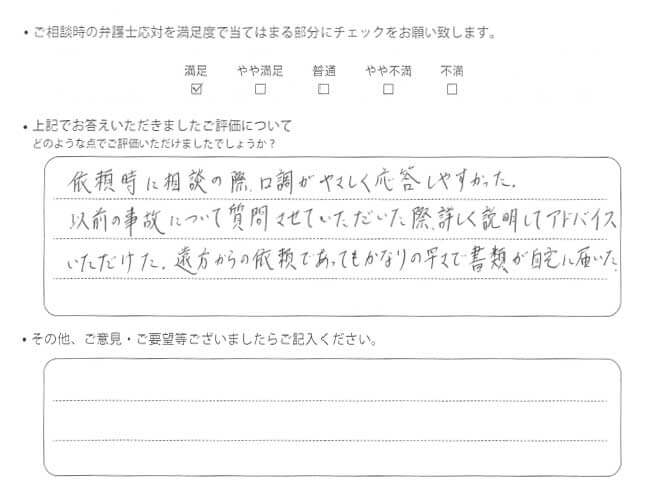 ・ご相談時の弁護士応対を満足度で当てはまる部分にチェックをお願い致します。
満足 やや満足 普通 やや不満 不満
☑ ☐ ☐ ☐ ☐
・上記でお答えいただきましたご評価について
どのような点でご評価いただけましたでしょうか？
依頼時に相談の際、口調がやさしく応答しやすかった。
以前の事故について質問させていただいた際、詳しく説明してアドバイス
いただけた。遠方からの依頼であってもかなりの早さで書類が自宅に届いた。
・その他、ご意見・ご要望等ございましたらご記入ください。